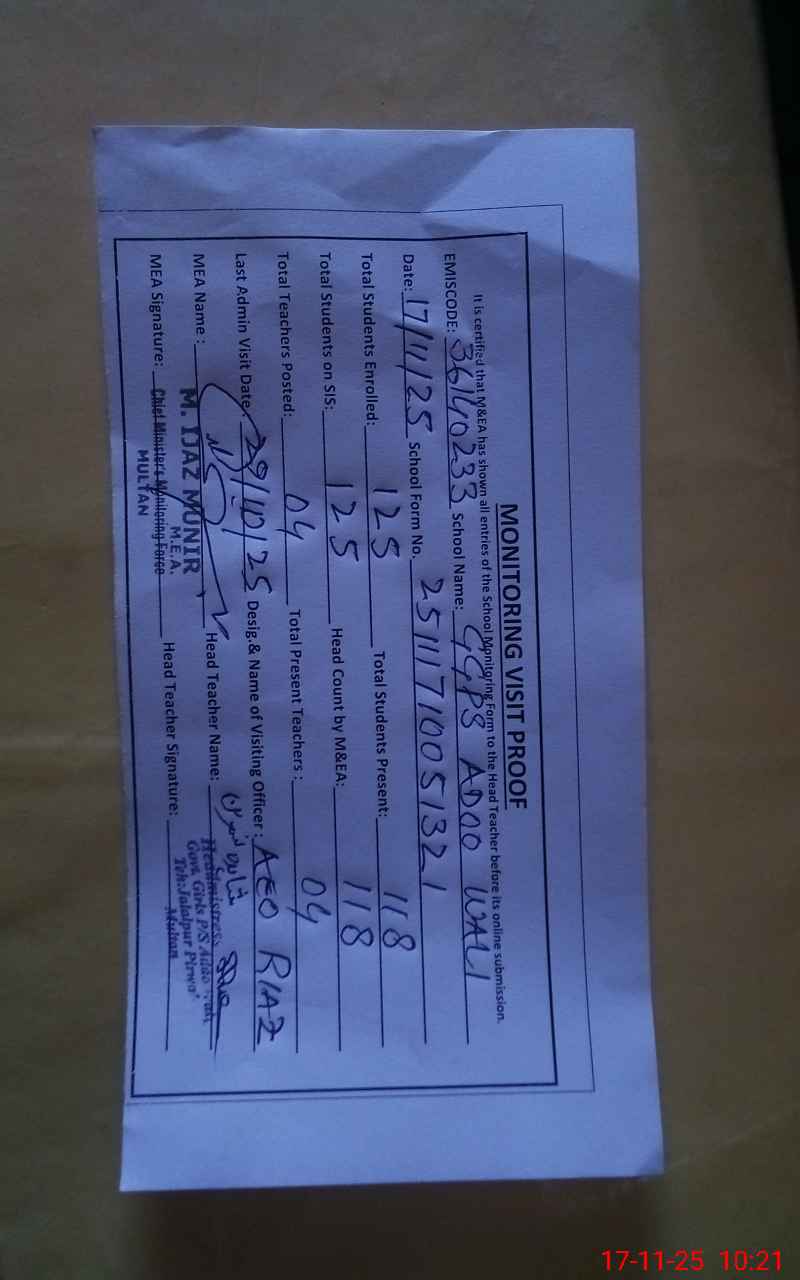 MONITORING VISIT PROOF
It is certified that M&EA has shown all entries of the School Monitoring Form to the Head Teacher before its online submission.
EMISCODE: 36140233 School Name: GGPS ADOO WALI
Date: 17/11/25 School Form No. 25111710051321
Total Students Enrolled: 125 Total Students Present: 118
Total Students on SIS: 125 Head Count by M&EA: 118
Total Teachers Posted: 04 Total Present Teachers : 04
Last Admin Visit Date: 29/10/25 Desig.& Name of Visiting Officer : AEO RIAZ
MEA Name : Head Teacher Name:
M. IJAZ MUNIR
M.E.A.
MEA Signature: Chief Minister's Monitoring Force Head Teacher Signature:
MULTAN
Headmistress
Govt. Girls P/S Addo Wali
Teh:Jalalpur Pirwal
Multan
17-11-25 10:21